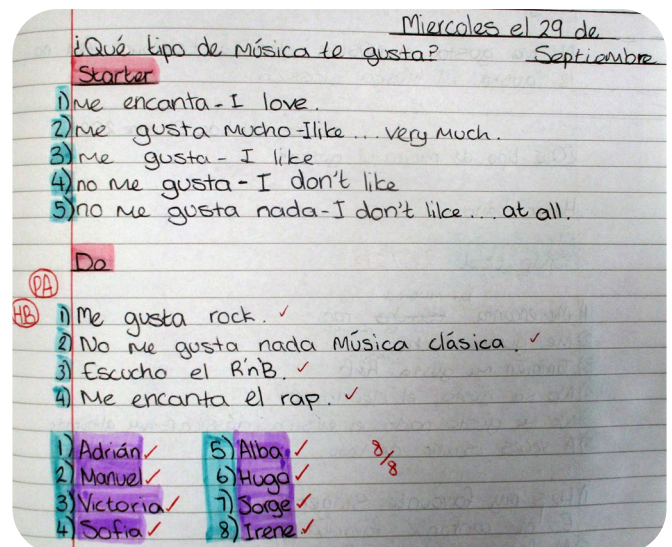 Miercoles el 29 de
¿Qué tipo de música te gusta? Septiembre
Starter
1) me encanta - I love.
2) me gusta mucho - I like ... very much.
3) me gusta - I like
4) no me gusta - I don't like
5) no me gusta nada - I don't like ... at all.
Do
PA
HB 1) Me gusta rock. ✓
2) No me gusta nada música clásica. ✓
3) Escucho el R'n'B. ✓
4) Me encanta el rap. ✓
1) Adrián ✓ 5) Alba. ✓ 8/8
2) Manuel ✓ 6) Hugo ✓
3) Victoria ✓ 7) Sorge ✓
4) Sofia ✓ 8) Irene ✓